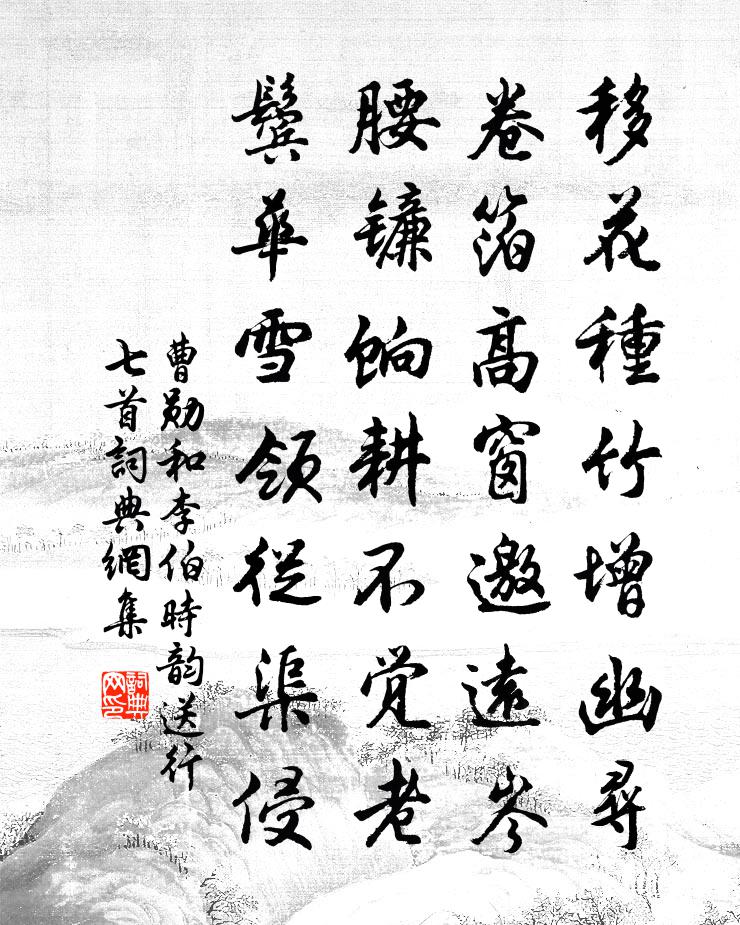 移花種竹增幽尋
卷箔高窗邀遠岑
腰镰餉耕不觉老
鬢華雪領從渠侵
曹勛和李伯時韵送行
七首詞典網集
詞典
网印